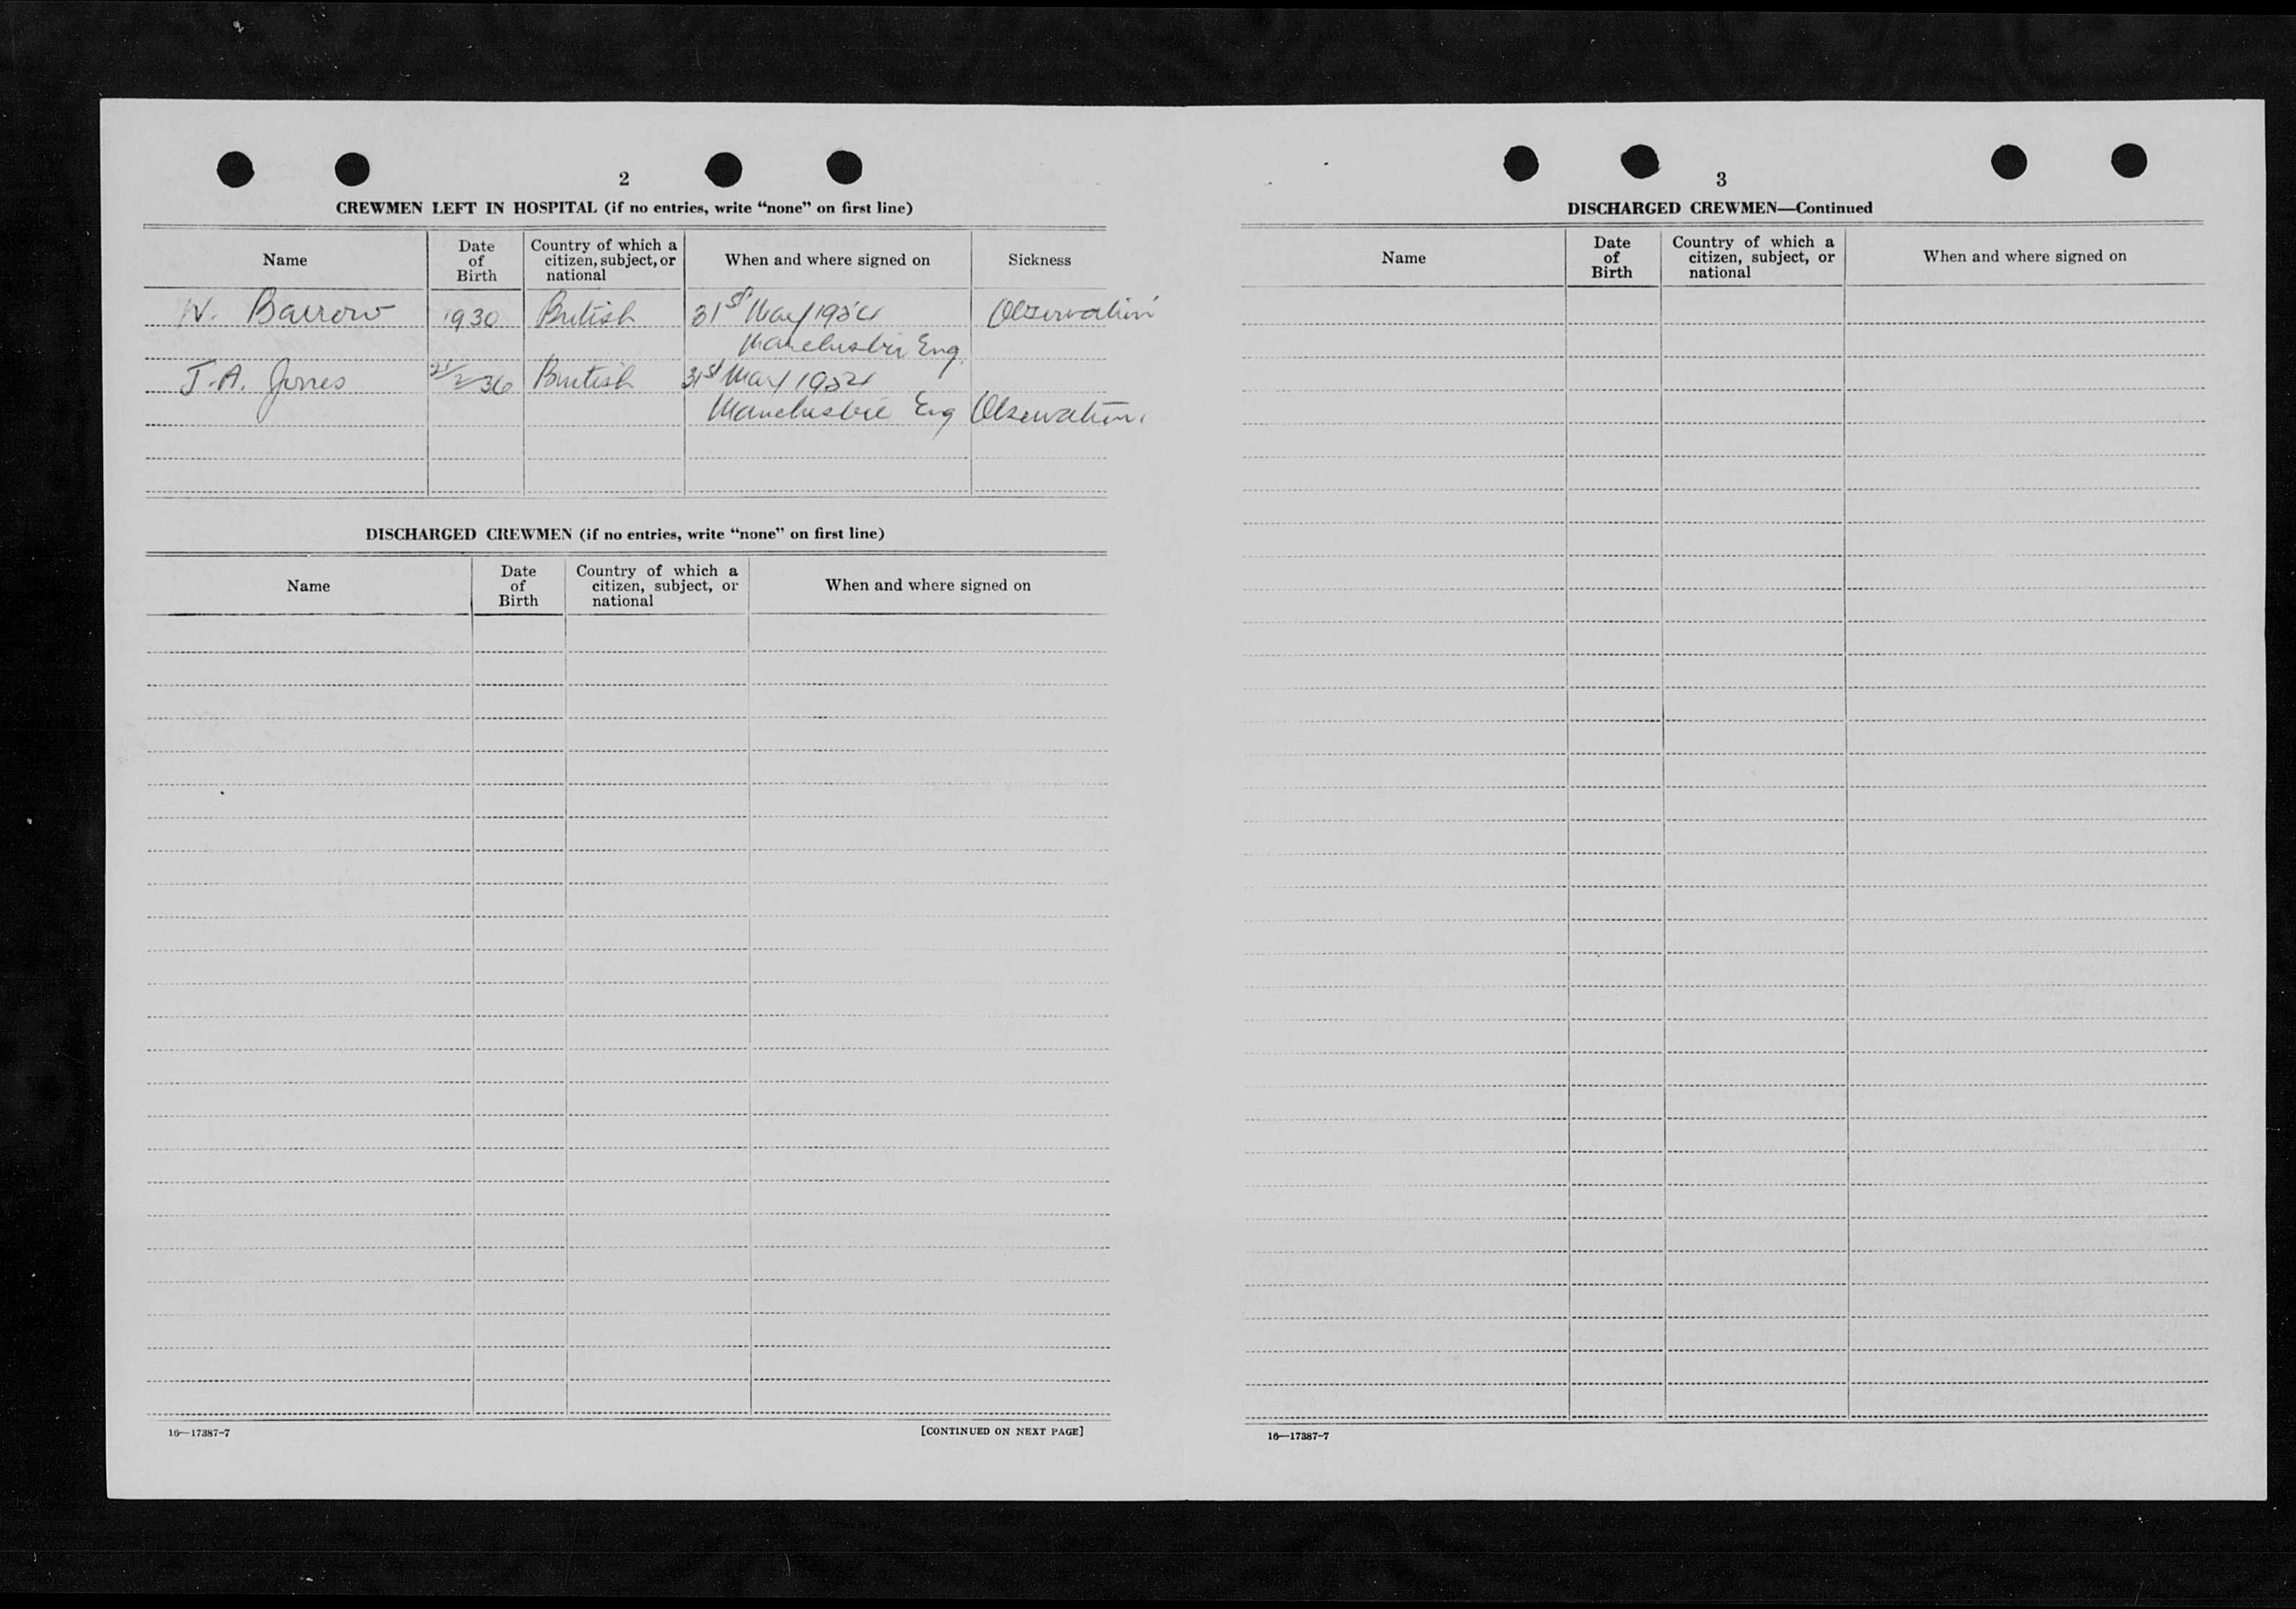 2
CREWMEN LEFT IN HOSPITAL (if no entries, write “none” on first line)
Name
Date of Birth
Country of which a citizen, subject, or national
When and where signed on
Sickness
W. Barrow 1930 British 31st May 1954 Observation
Manchester Eng.
J.A. Jones 21/2/36 British 31st May 1954
Manchester Eng Observation.
DISCHARGED CREWMEN (if no entries, write “none” on first line)
Name
Date of Birth
Country of which a citizen, subject, or national
When and where signed on
16—17387-7 [CONTINUED ON NEXT PAGE]
3
DISCHARGED CREWMEN—Continued
Name
Date of Birth
Country of which a citizen, subject, or national
When and where signed on
16—17387-7